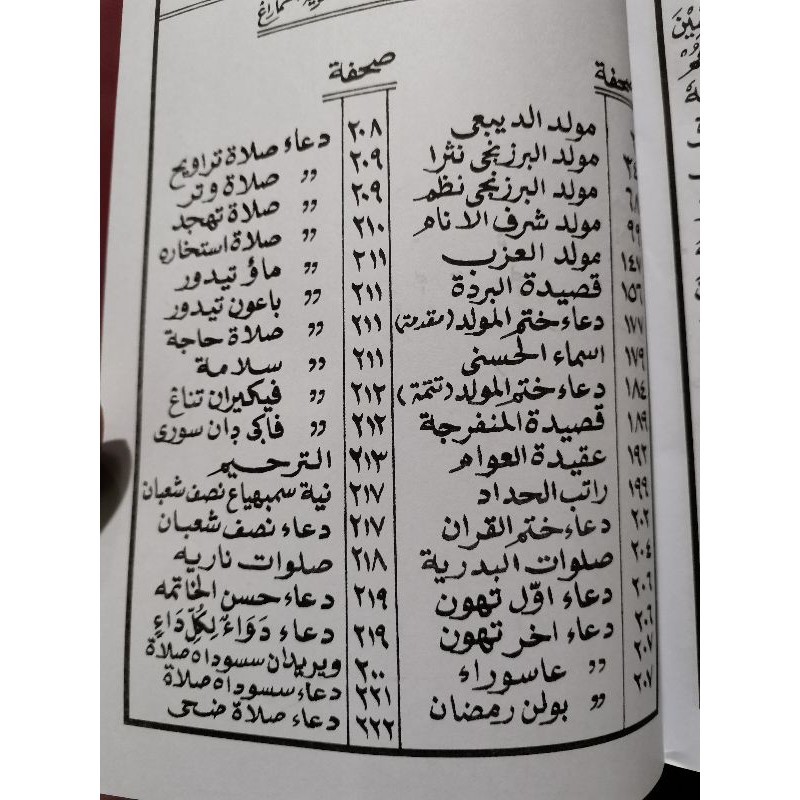 صحفة
٢ مولد الديبعى
٣٤ مولد البرزنجى نثرا
٦٨ مولد البرزنجى نظم
٩٩ مولد شرف الانام
١٤٧ مولد العزب
١٥٦ قصيدة البردة
١٧٧ دعاء ختم المولد (مقدمة)
١٧٩ اسماء الحسنى
١٨٤ دعاء ختم المولد (تتمة)
١٨٩ قصيدة المنفرجة
١٩٢ عقيدة العوام
١٩٩ راتب الحداد
٢٠٢ دعاء ختم القران
٢٠٤ صلوات البدرية
٢٠٦ دعاء اوّل تهون
٢٠٦ دعاء اخر تهون
٢٠٧ „ عاسوراء
٢٠٧ „ بولن رمضان
صحفة
٢٠٨ دعاء صلاة تراويح
٢٠٩ „ صلاة وتر
٢٠٩ „ صلاة تهجد
٢١٠ „ صلاة استخاره
٢١١ „ ماؤ تيدور
٢١١ „ باعون تيدور
٢١١ „ صلاة حاجة
٢١١ „ سلامة
٢١٢ „ فيكيران تناغ
٢١٢ „ فاكى دان سورى
٢١٣ الترحيم
٢١٧ نية سمبهياغ نصف شعبان
٢١٧ دعاء نصف شعبان
٢١٨ صلوات ناريه
٢١٩ دعاء حسن الخاتمه
٢١٩ دعاء دَوَاءٌ لِكُلِّ دَاءٍ
٢٠٠ ويريدان سسوداه صلاة
٢٢١ دعاء سسوداه صلاة
٢٢٢ دعاء صلاة ضحى